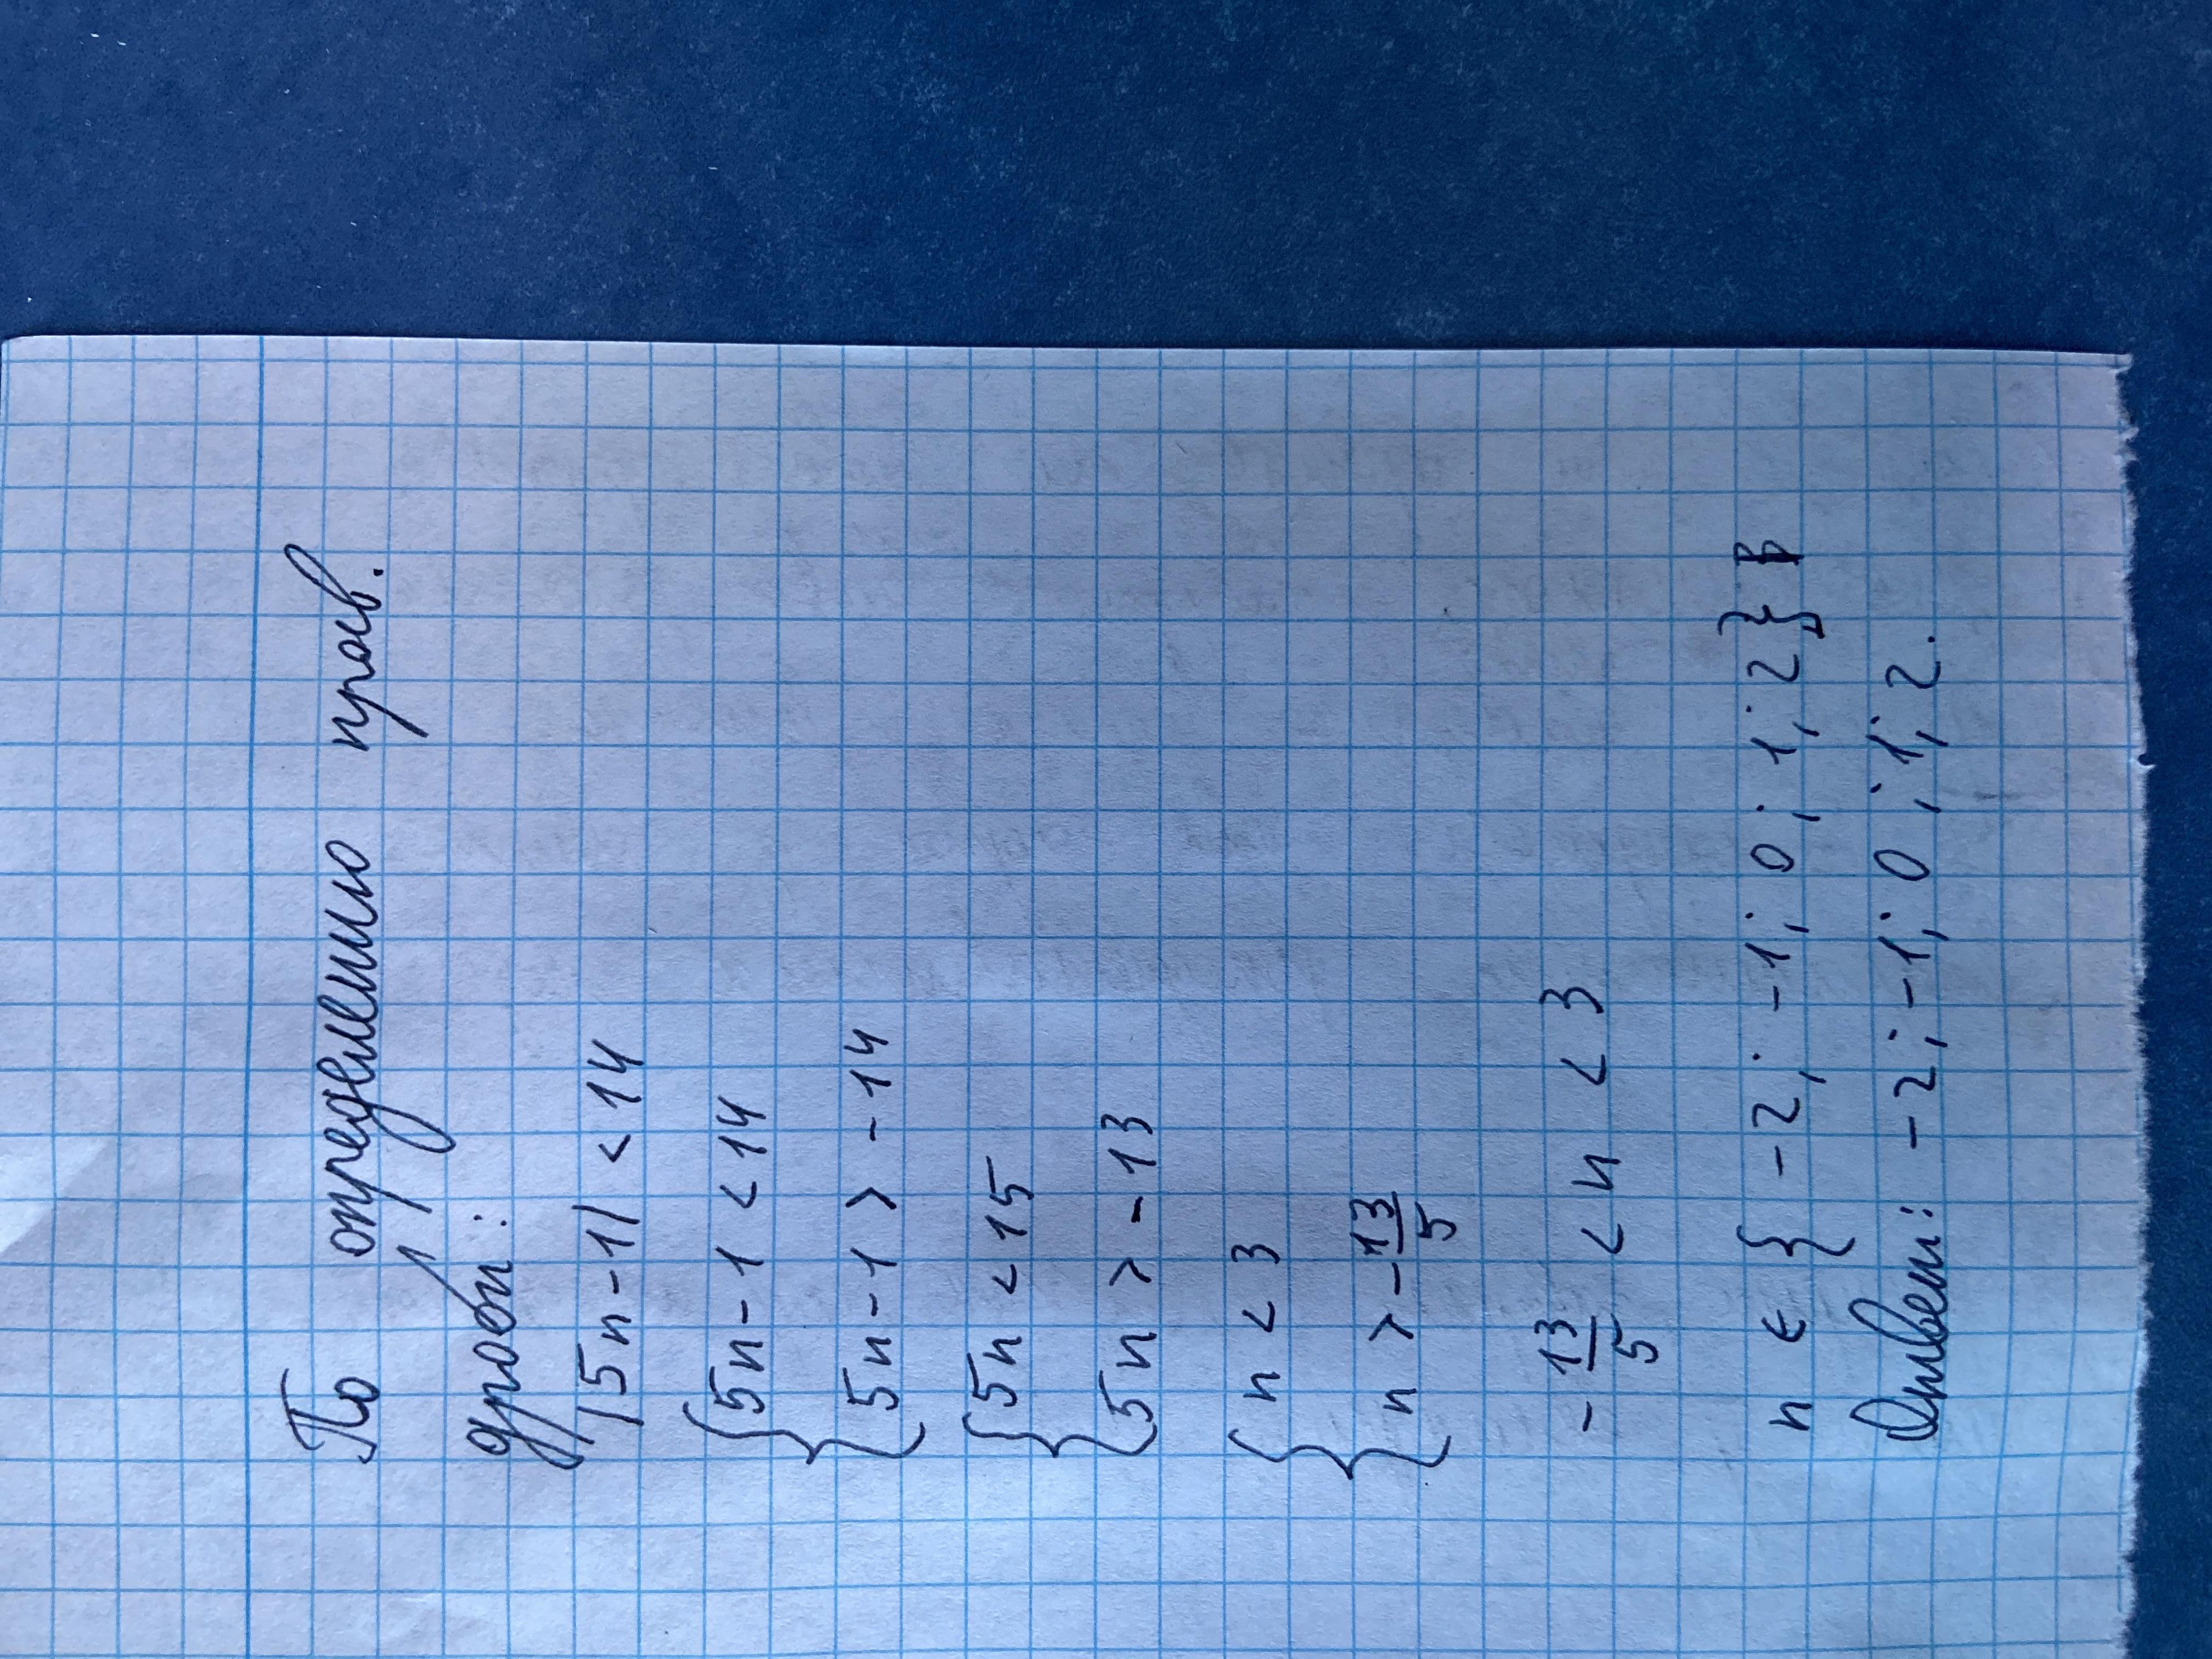 По определению прав.
дроби:
|5n-1| < 14
{5n-1 < 14
{5n-1 > -14
{5n < 15
{5n > -13
{n < 3
{n > -13/5
-13/5 < n < 3
n ∈ {-2; -1; 0; 1; 2}
Ответ: -2; -1; 0; 1; 2.